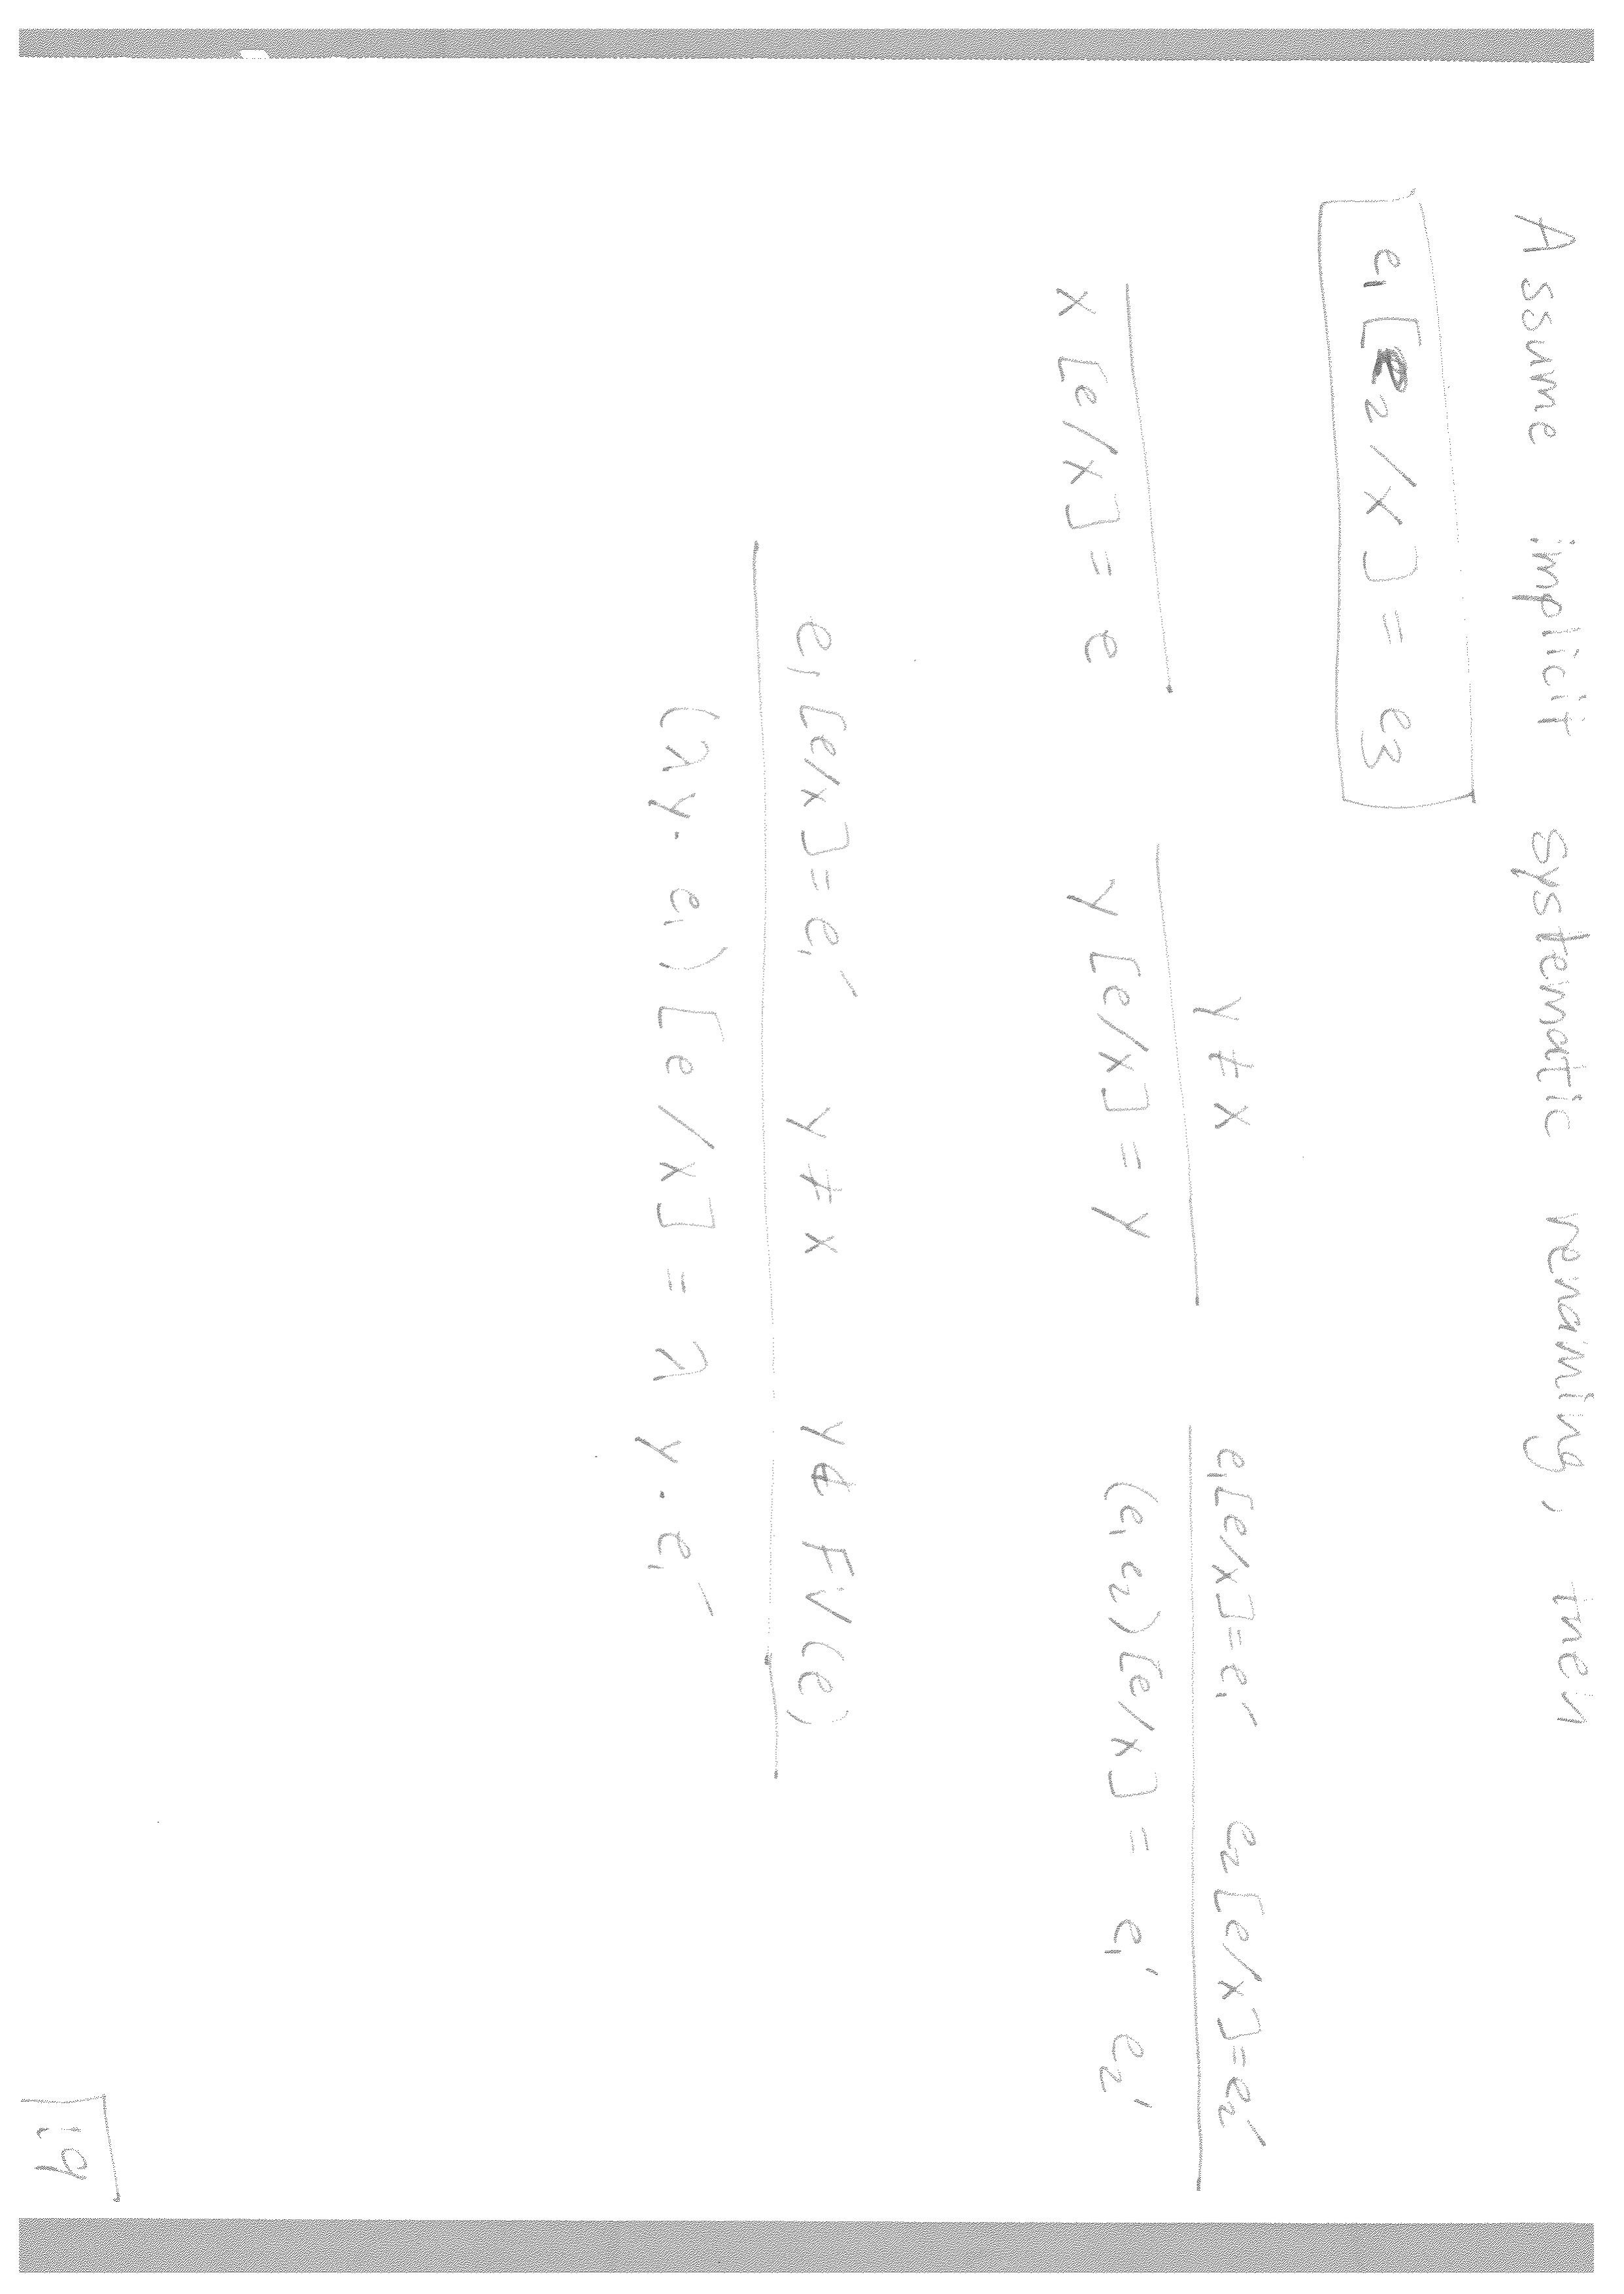 Assume implicit systematic renaming, then
e₁[e₂/x] = e₃
y ≠ x e₁[e/x]=e₁′ e₂[e/x]=e₂′
x[e/x] = e y[e/x] = y (e₁ e₂)[e/x] = e₁′ e₂′
e₁[e/x]=e₁′ y ≠ x y ∉ FV(e)
(λy. e₁)[e/x] = λy. e₁′
19